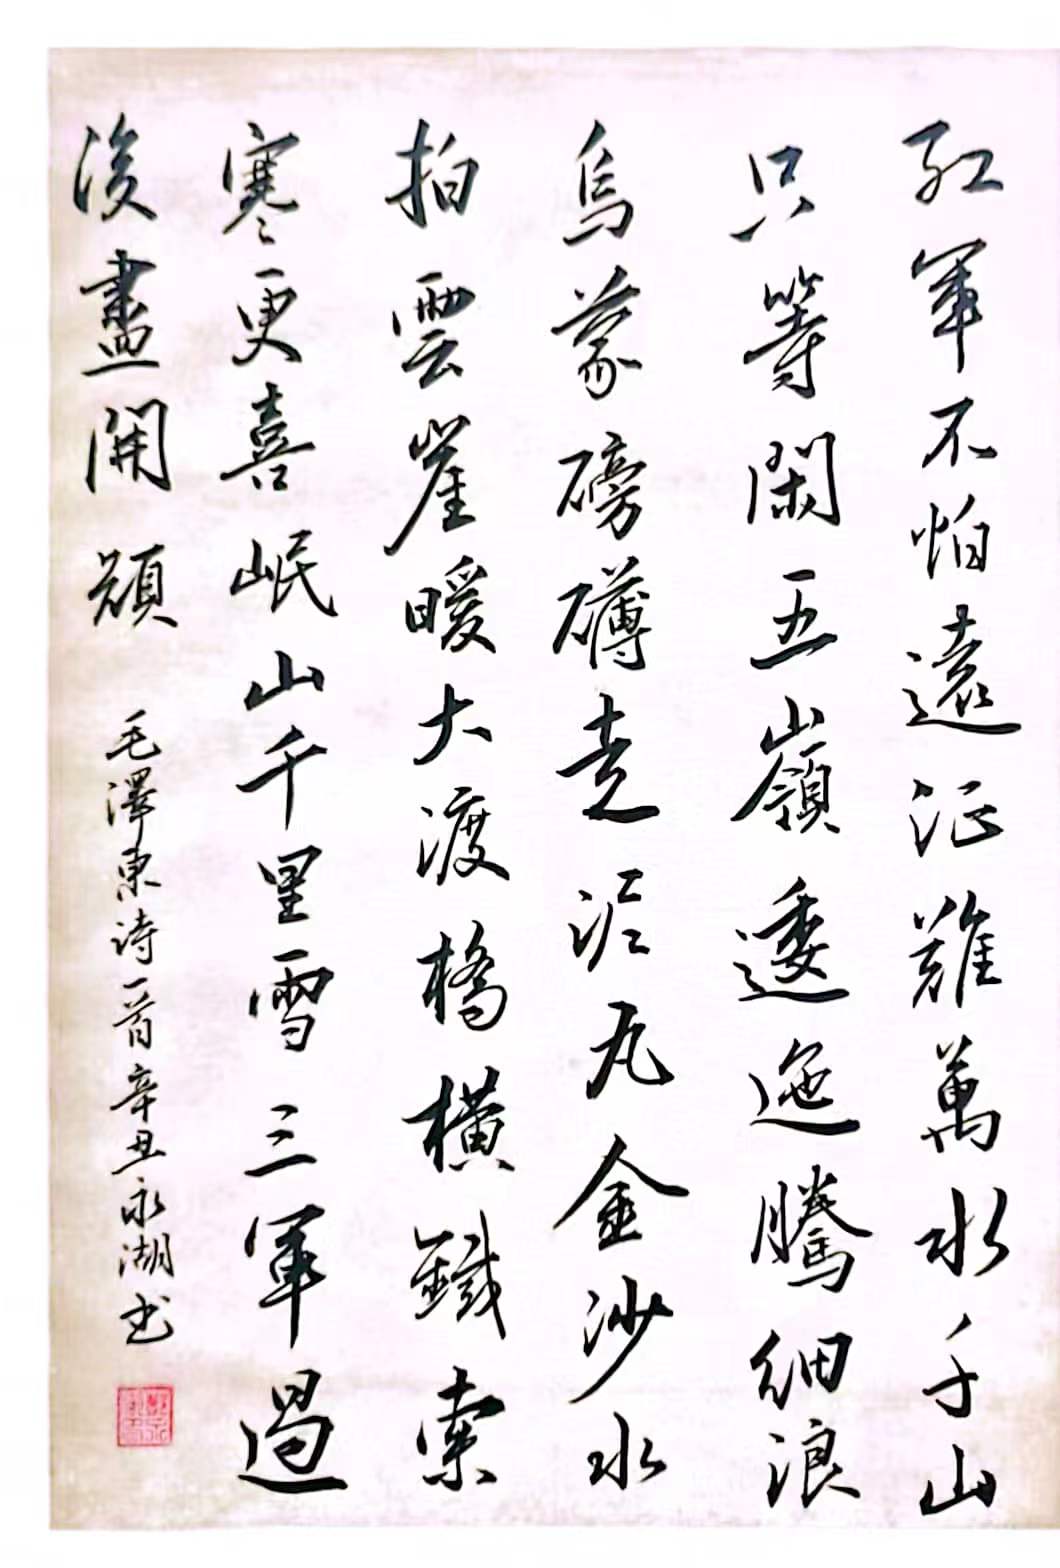 紅軍不怕遠征難萬水千山
只等閑五嶺逶迤騰細浪
烏蒙磅礴走泥丸金沙水
拍雲崖暖大渡橋橫鐵索
寒更喜岷山千里雪三軍過
後盡開顏
毛澤東诗一首辛丑永湖书